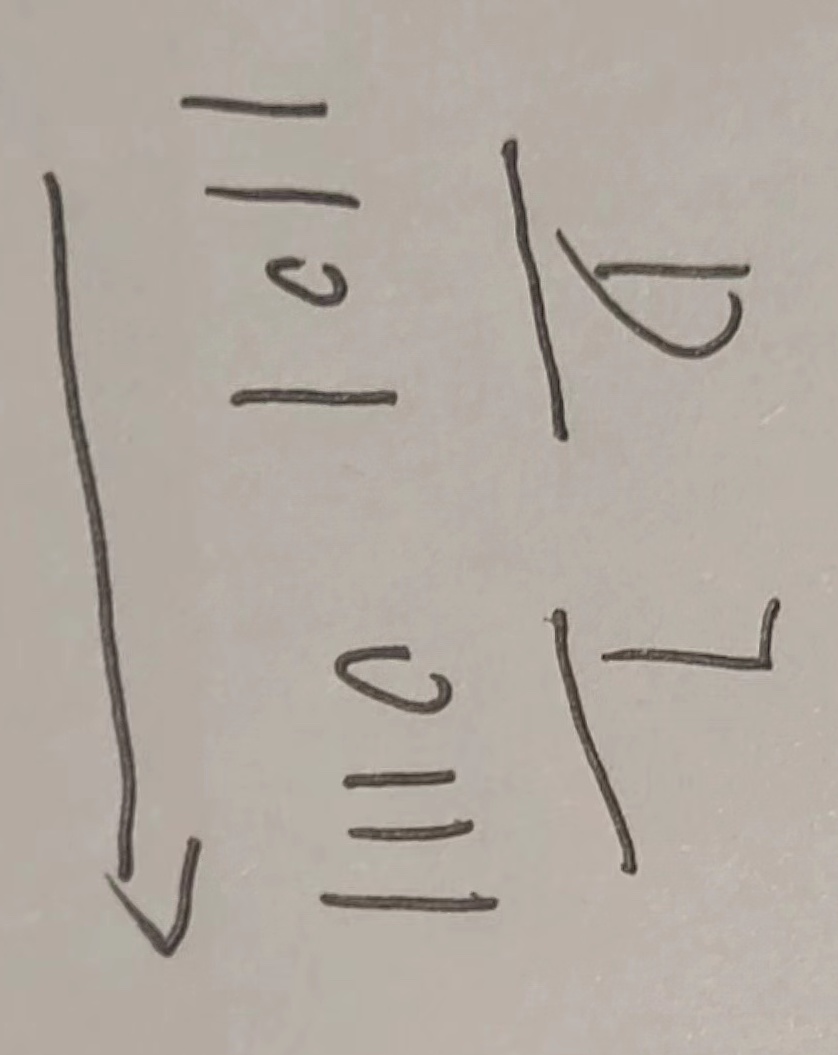 D 7
1101 0111